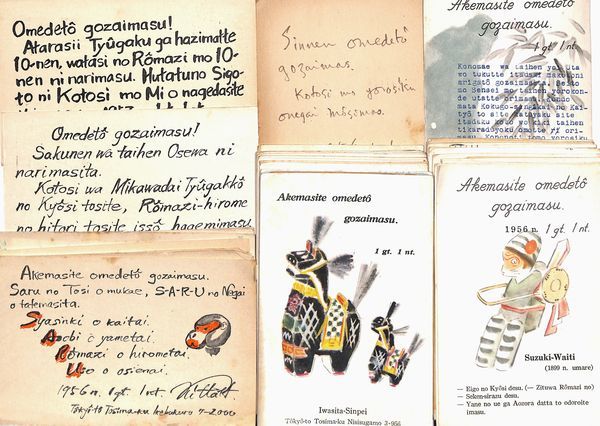 Omedetô gozaimasu!
Atarasii Tyûgaku ga hazimatte
10-nen, watasi no Rômazi mo 10-
nen ni narimasu. Hutatuno Sigo-
to ni Kotosi mo Mi o nagedasite
Sinnen omedetô
gozaimas.
Kotosi mo yorosiku
onegai môsimas.
Akemasite omedetô
gozaimasu.
1 gt. 1 nt.
Konomae wa taihen yoi Uta
wo tukutte itadaki makotoni
arigatô gozaimasita.
no Sensei
de utatte orimasu.
mata Kokugo-singikai no Kai-
tyô to site
itadaku
tikaradyoku omotte
masu. Kononoti tomo yorosiku
Omedetô gozaimasu!
Sakunen wa taihen Osewa ni
narimasita.
Kotosi wa Mikawadai Tyûgakkô
no Kyôsi tosite, Rômazi-hirome
no hitori tosite issô hagemimasu.
Akemasite omedetô
gozaimasu.
1 gt. 1 nt.
Iwasita-Sinpei
Tôkyô-to Tosima-ku Nisisugamo 2-956
Akemasite omedetô
gozaimasu.
1956 n. 1 gt. 1 nt.
Suzuki-Waiti
(1899 n. umare)
— Eigo no Kyôsi desu. (— Zituwa Rômazi no)
— Seken-sirazu desu.
— Yane no ue no Aozora datta to odoroite
imasu.
Akemasite omedetô gozaimasu.
Saru no Tosi o mukae, S-A-R-U no Negai
o tatemasita.
Syasinki o kaitai.
Asobi o yametai.
Rômazi o hirometai.
Uso o osienai.
1956 n. 1 gt. 1 nt.
Tôkyô-to Tosima-ku Ikebukuro 7-2000